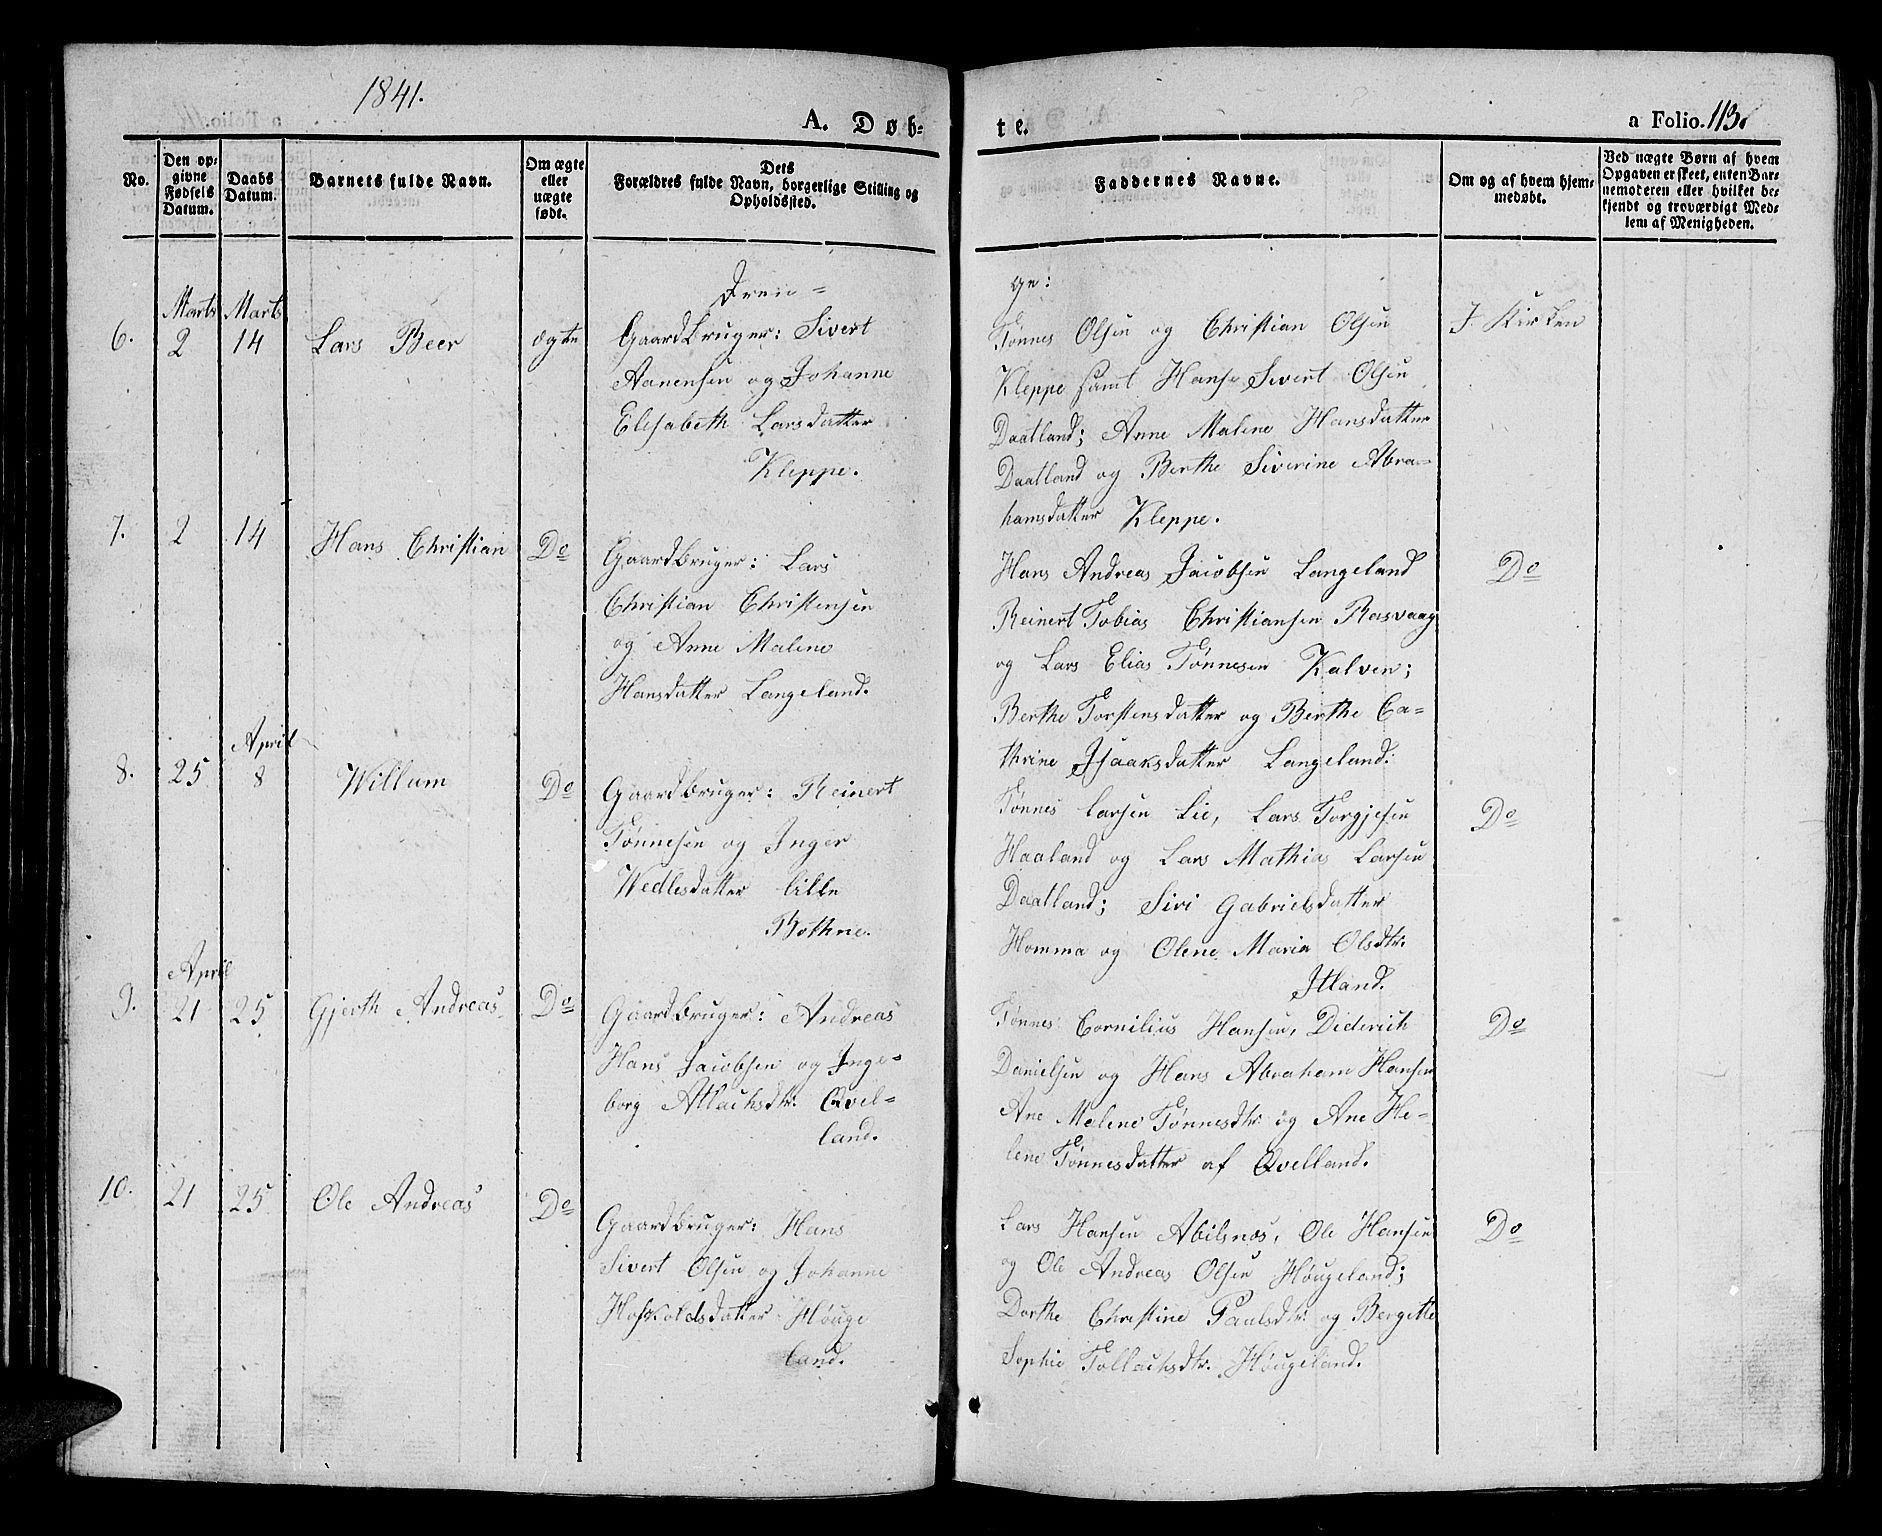 1841.
A. Døb-
te.
a Folio. 113.
No.
Den op-
givne
Fødsels
Datum.
Daabs
Datum.
Barnets fulde Navn.
Om ægte
eller
uægte
født.
Dets
Forældres fulde Navn, borgerlige Stilling og
Opholdssted.
Faddernes Navne.
Om og af hvem hjem-
medøbt.
Ved uægte Børn af hvem
Opgaven er skeet, enten Bar-
nemoderen eller hvilket be-
kjendt og troværdigt Med-
lem af Menigheden.
Dren=
ge:
Marts Marts
6. 2 14 Lars Beer ægte
Gaardbruger: Sivert
Aanensen og Johanne
Elisabeth Larsdatter
Kleppe.
Tønnes Olsen og Christian Olsen
Kleppe samt Hans Sivert Olsen
Daatland; Anne Malene Hansdatter
Daatland og Berthe Siverine Abra-
hamsdatter Kleppe.
I Kirken
7. 2 14 Hans Christian Do
Gaardbruger: Lars
Christian Christensen
og Anne Malene
Hansdatter Langeland.
Hans Andreas Jacobsen Langeland
Reinert Tobias Christiansen Rasvaag
og Lars Elias Tønnesen Kalven;
Berthe Torstensdatter og Berthe Ca-
thrine Isaaksdatter Langeland.
Do
April
8. 25 8 Willum Do
Gaardbruger: Reinert
Tønnesen og Inger
Wedlesdatter lille
Bothne.
Tønnes Larsen Lie, Lars Torgjesen
Haaland og Lars Mathias Larsen
Daatland; Siri Gabrielsdatter
Homma og Olene Maria Olsdtr.
Itland.
Do
April
9. 21 25 Gjerth Andreas Do
Gaardbruger: Andreas
Hans Jacobsen og Inge-
borg Atlachsdtr. Qvel-
land.
Tønnes Cornilius Hansen, Diderich
Danielsen og Hans Abraham Hansen
Ane Malene Tønnesdtr. og Ane He-
lene Tønnesdatter af Qvelland.
Do
10. 21 25 Ole Andreas Do
Gaardbruger: Hans
Sivert Olsen og Johanne
Hoskoldsdatter Høuge
land.
Lars Hansen Abilsnæs, Ole Hansen
og Ole Andreas Olsen Høugeland;
Dorthe Christine Paulsdtr. og Bergitte
Sophie Tollachsdtr. Høugeland.
Do